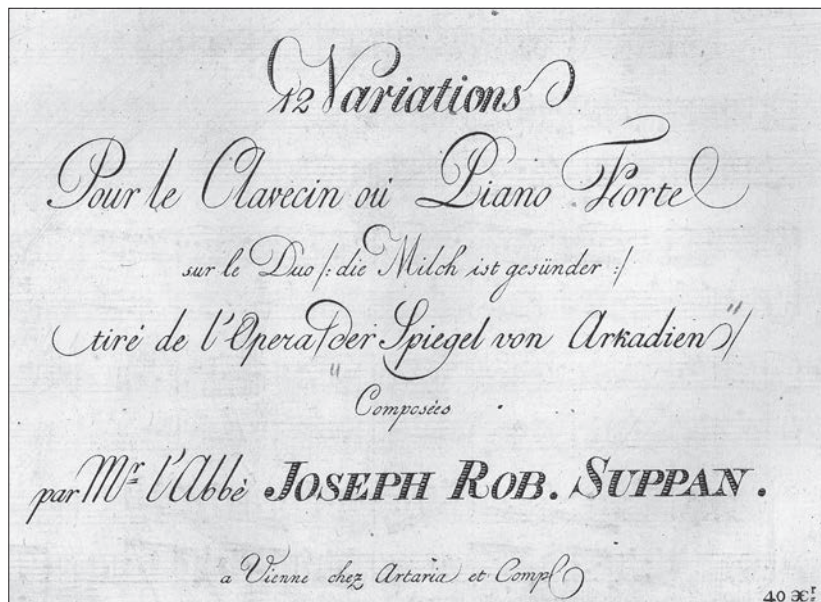 12 Variations
Pour le Clavecin oú Piano Forte
sur le Duo /: die Milch ist gesünder :/
tiré de l'Opera / der Spiegel von Arkadien "/
"
Composées
par Mr. l'Abbè JOSEPH ROB. SUPPAN.
a Vienne chez Artaria et Comp.
40 Xr.